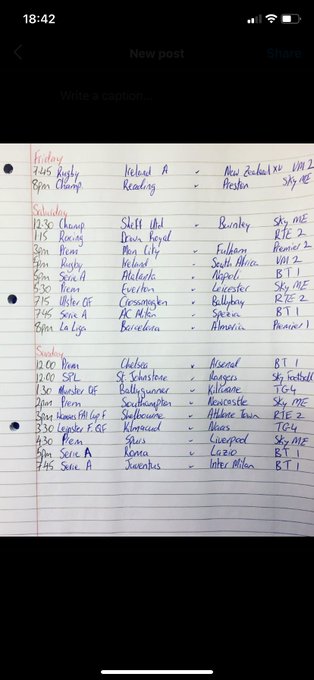 18:42
New post
Share
Write a caption...
Friday
7:45 Rugby Ireland A v New Zealand XV VM 2
8pm Champ. Reading v Preston Sky ME
Saturday
12:30 Champ Sheff Utd v Burnley Sky ME
1:15 Racing Down Royal RTE 2
3pm Prem Man City v Fulham Premier 2
5pm Rugby Ireland v South Africa VM 2
5pm Serie A Atalanta v Napoli BT 1
5:30 Prem Everton v Leicester Sky ME
7:15 Ulster QF Crossmaglen v Ballybay RTE 2
7:45 Serie A AC Milan v Spezia BT 1
8pm La Liga Barcelona v Almeria Premier 1
Sunday
12:00 Prem Chelsea v Arsenal BT 1
12:00 SPL St. Johnstone v Rangers Sky Football
1:30 Munster QF Ballygunner v Kilruane TG4
2pm Prem Southampton v Newcastle Sky ME
3pm Womens FAI Cup F Shelbourne v Athlone Town RTE 2
3:30 Leinster F. QF Kilmacud v Naas TG4
4:30 Prem Spurs v Liverpool Sky ME
5pm Serie A Roma v Lazio BT 1
7:45 Serie A Juventus v Inter Milan BT 1